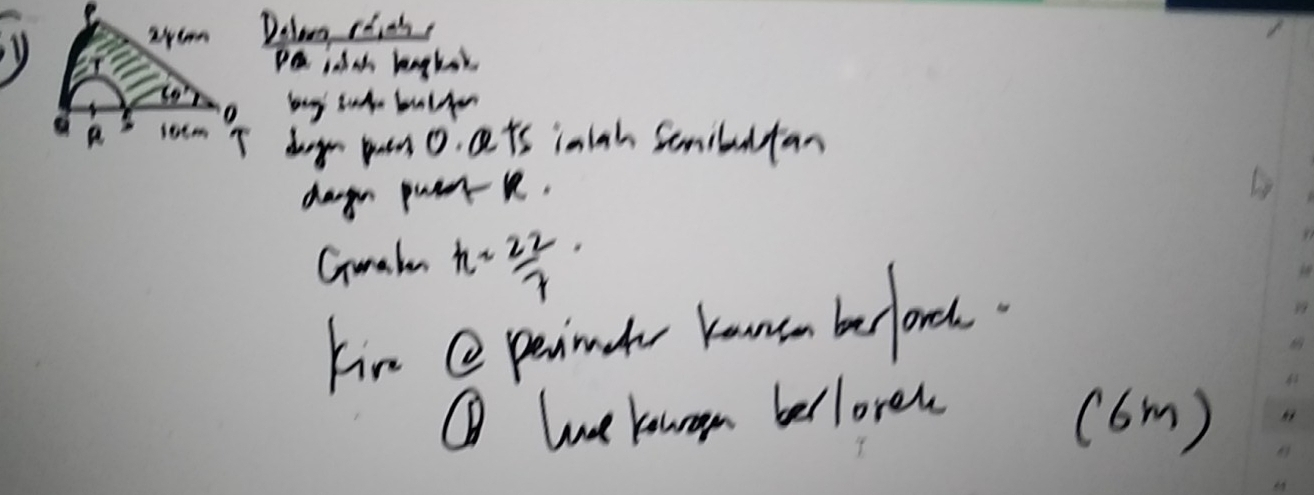 P
24cm
T
60°
Q R S 10cm O T
Dalam rajah,
PQ ialah lengkok
bagi suatu bulatan
dengan pusat O. QTS ialah semibulatan
dengan pusat R.
Gunakan π = 22/7.
Kira @ perimeter kawasan berlorek.
ⓑ luas kawasan berlorek (6m)